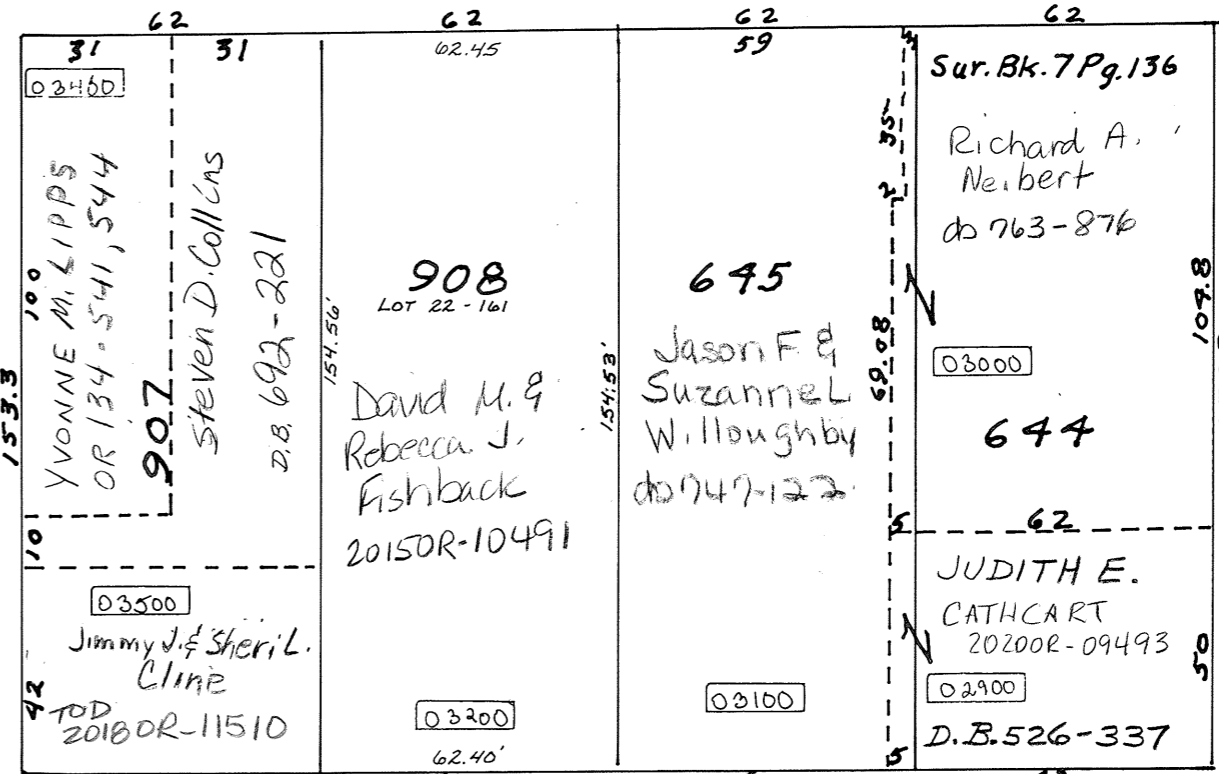 62
62
62
62
31
31
03400
YVONNE M. LIPPS
OR 134-541, 544
907
Steven D. Collins
D.B. 692-221
153.3
100
10
42
03500
Jimmy J. & Sheri L.
Cline
TOD
2018OR-11510
62.45
154.56'
908
LOT 22-161
David M. &
Rebecca J.
Fishback
2015OR-10491
03200
62.40'
154.53'
59
645
Jason F &
Suzanne L
Willoughby
db 747-122
03100
3
35
2
69.08
5
5
Sur. Bk. 7 Pg. 136
Richard A.
Neibert
db 763-876
03000
104.8
644
62
JUDITH E.
CATHCART
2020OR-09493
02900
50
D.B. 526-337